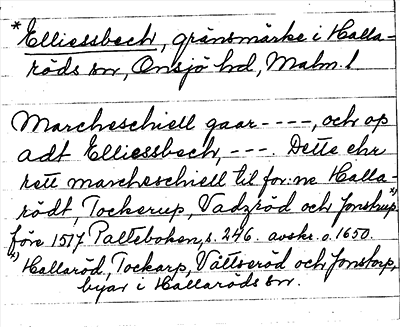 *Elliessbech, gränsmärke i Halla-
röds sn, Onsjö hd, Malm. l
Marcheschiell gaar ----, och op
adt Elliessbech, ---. Dette ehr
rett marcheschiell til for:ne Halla-
rödt, Tockerup, Vadzröd och Jonstrup.*)
före 1577 Palteboken, s. 246. avskr. o. 1650.
*) Hallaröd, Tockarp, Vättseröd och Jonstorp,
byar i Hallaröds sn.